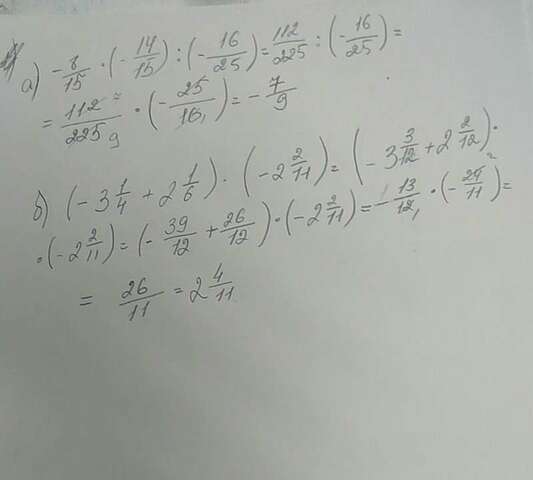 а) -8/15 · (-14/15) : (-16/25) = 112/225 : (-16/25) =
= 112/225 · (-25/16) = -7/9
б) (-3 1/4 + 2 1/6) · (-2 2/11) = (-3 3/12 + 2 2/12) ·
· (-2 2/11) = (-39/12 + 26/12) · (-2 2/11) = -13/12 · (-24/11) =
= 26/11 = 2 4/11